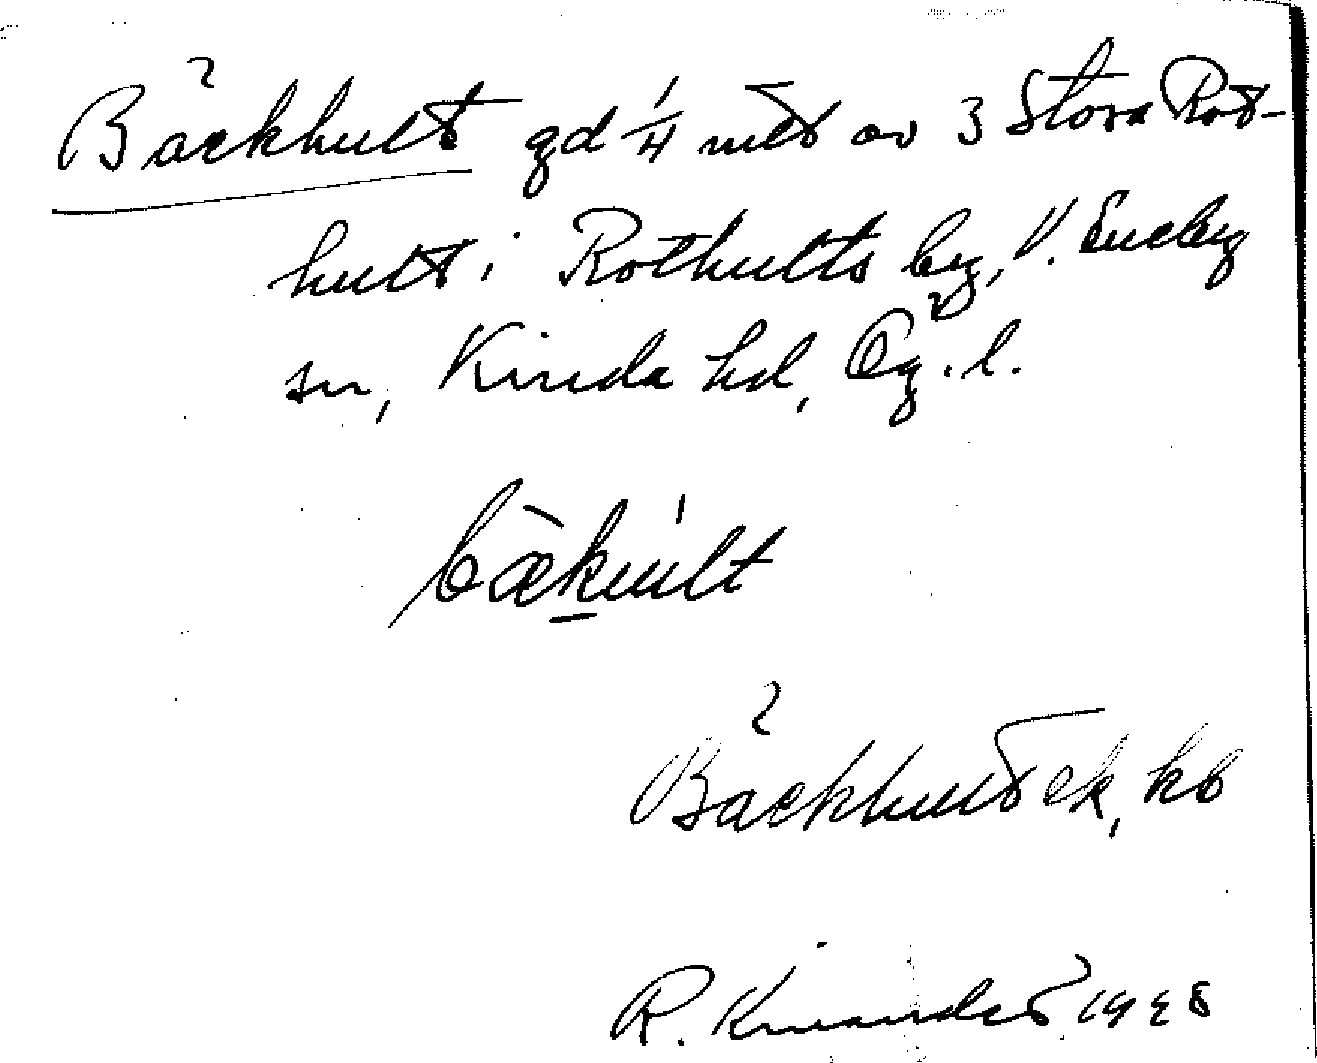 Bäckhult gd 1/4 mtl av 3 Stora Rot-
hult i Rothults by, V. Eneby
sn, Kinda hd, Ög. l.
bækult
Bäckhult ek, kb
R. 19